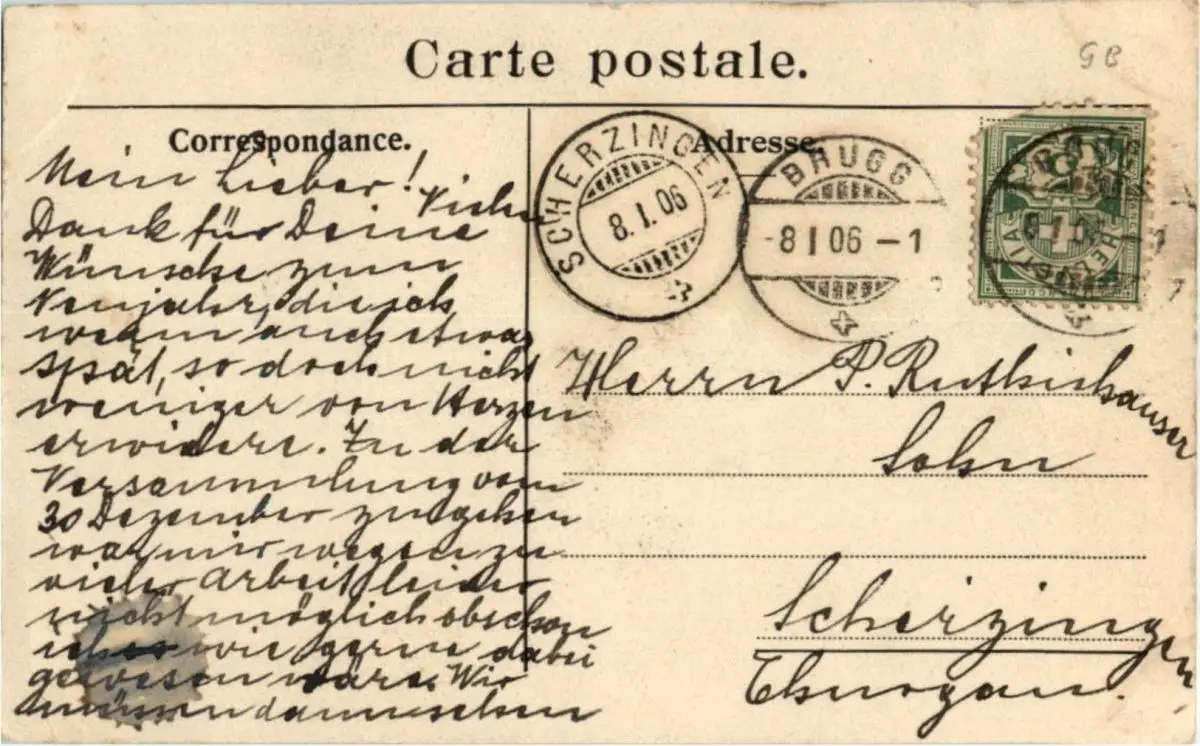 Carte postale.
GB
Correspondance.
Adresse.
SCHERZINGEN
8.I.06
BRUGG
-8 I 06 -1
BRUGG
8 I 06 -1
HELVETIA
Mein Lieber! Vielen
Dank für Deine
Wünsche zum
Neujahr, die ich
wenn auch etwas
spät, so doch nicht
weniger von Herzen
erwidere. Zu der
Versammlung vom
30 Dezember zu gehen
war mir wegen zu
vieler Arbeit leider
nicht möglich obschon
ich wie gerne dabei
gewesen wäre. Wir
müssen dann sehen
Herrn P. Rutishauser
Sohn
Scherzingen
Thurgau.